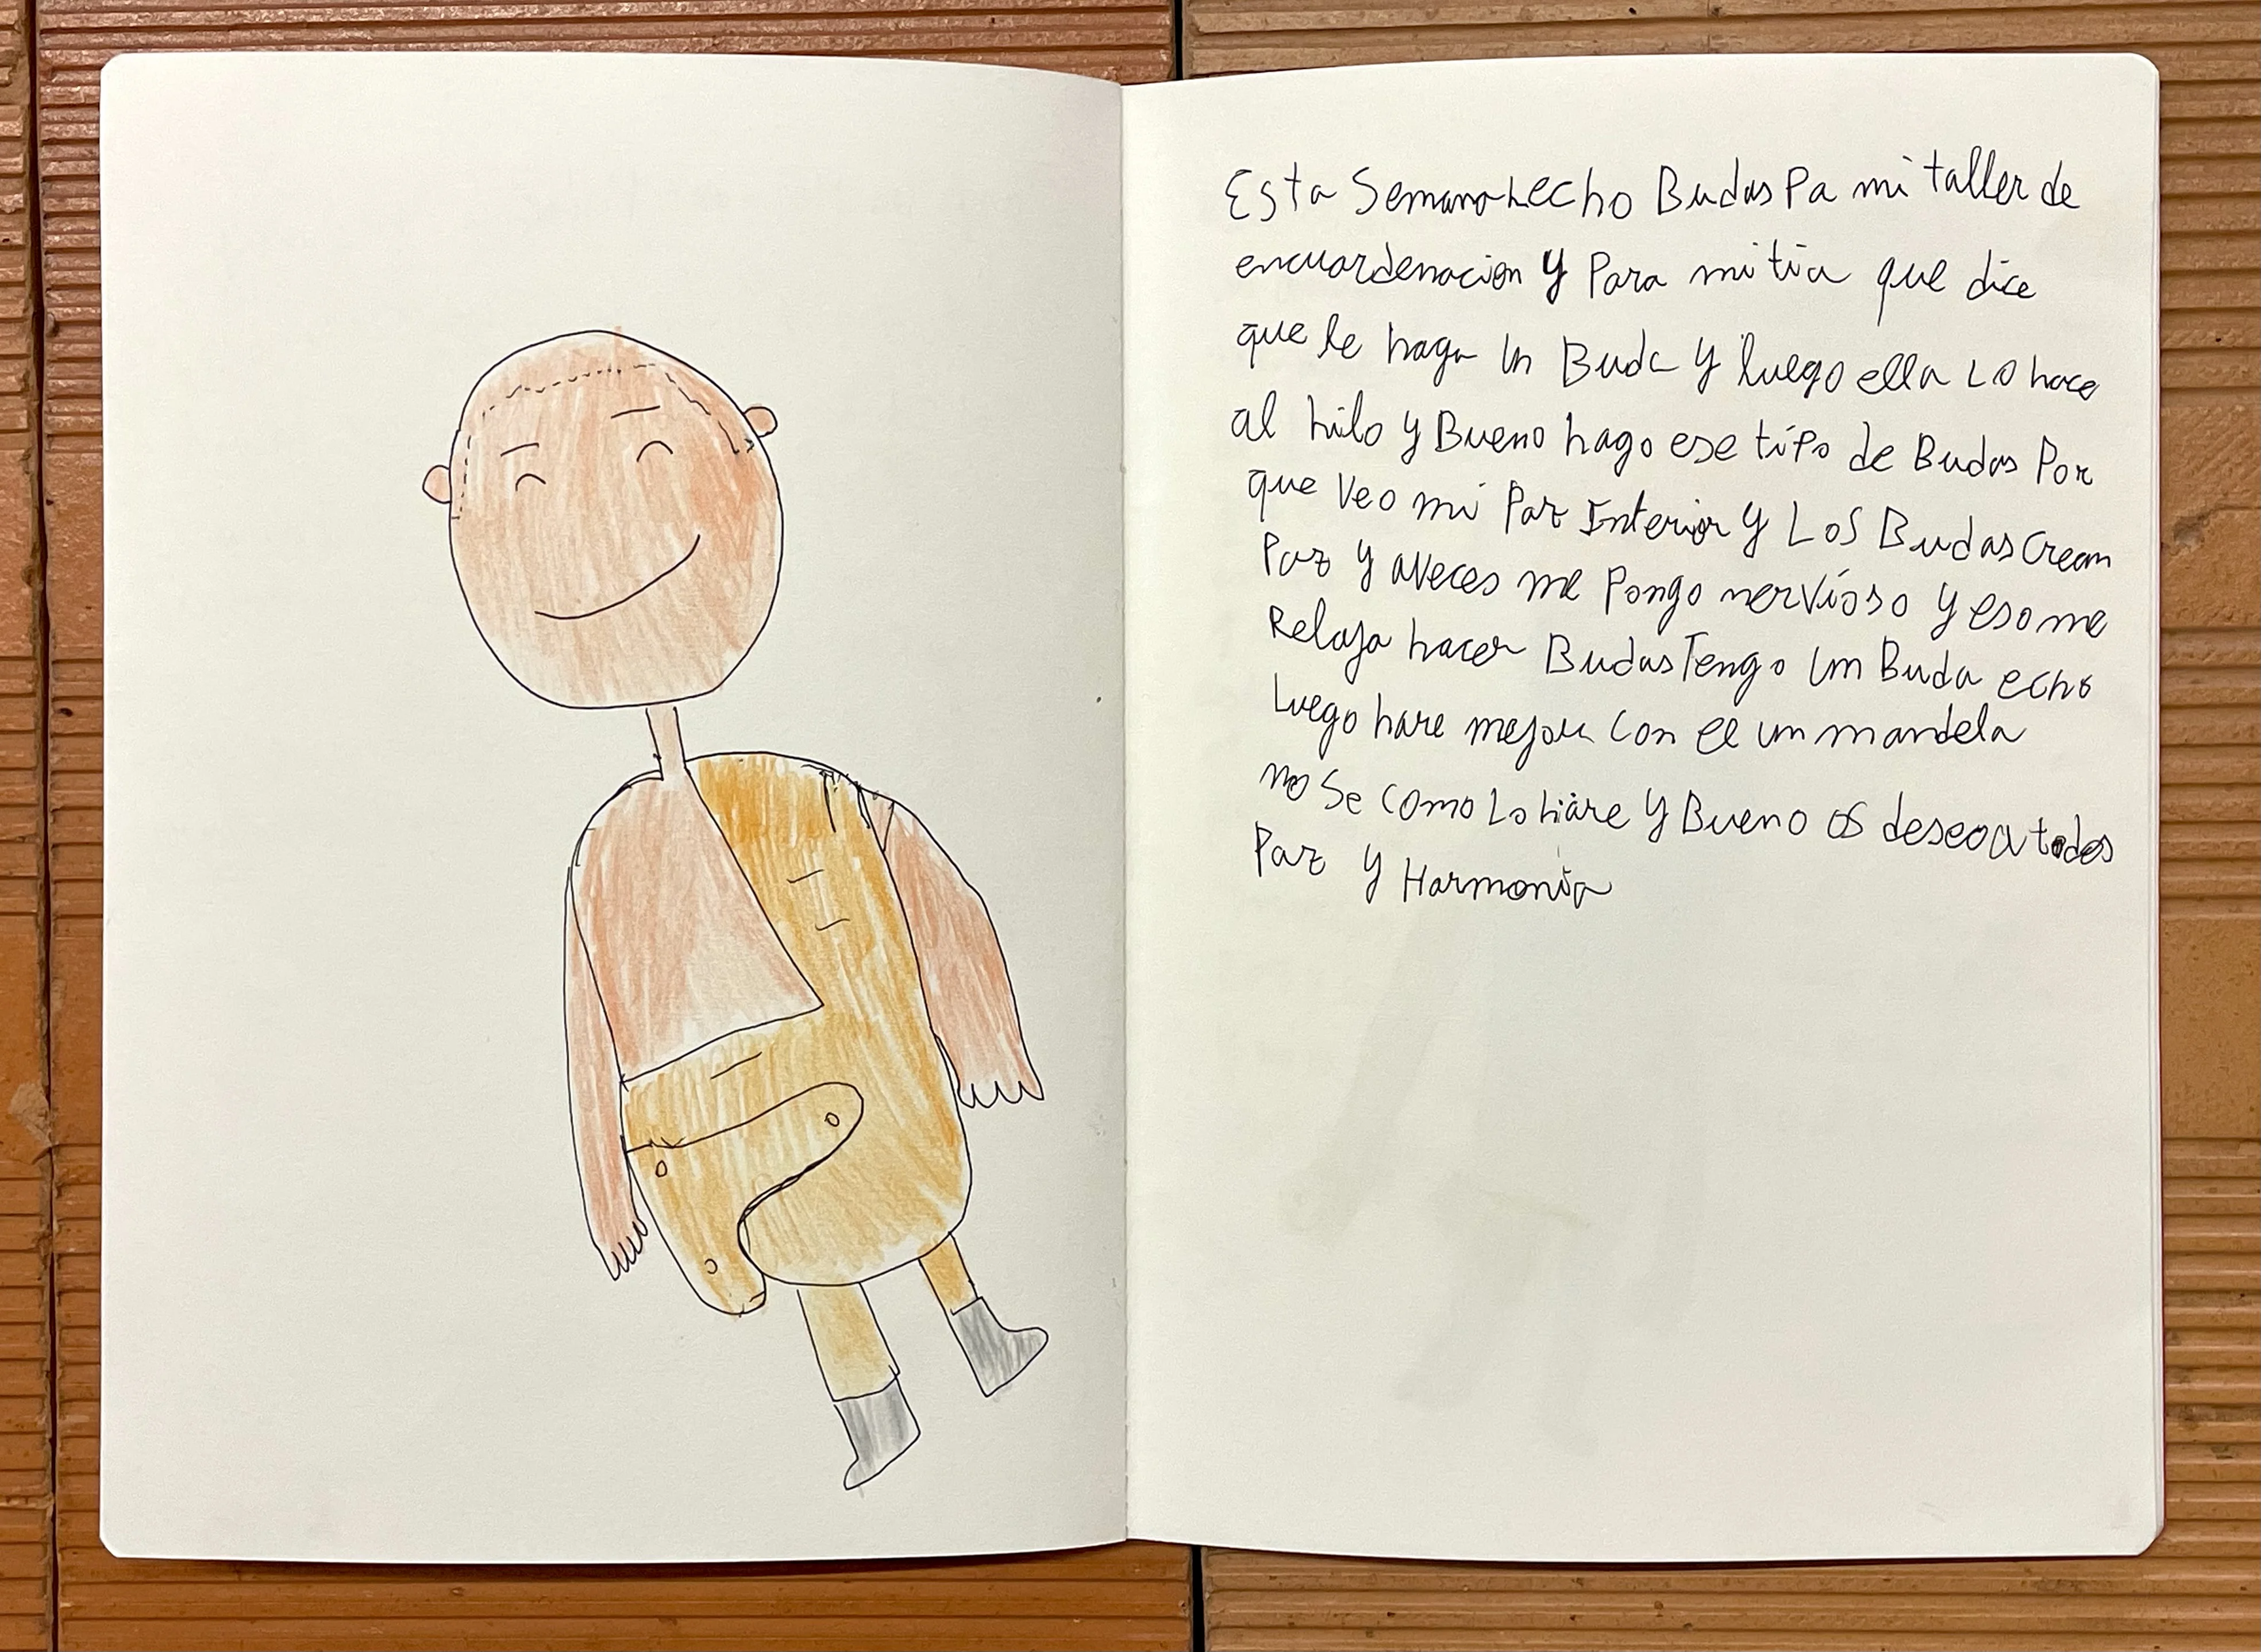 Esta Semana hecho Budas Pa mi taller de
encuardenacion y Para mi tia que dice
que le haga un Buda y luego ella Lo hace
al hilo y Bueno hago ese tipo de Budas Por
que veo mi Paz Interior y Los Budas Crean
Paz y aveces me Pongo nervioso y eso me
Relaja hacer Budas Tengo un Buda echo
Luego hare mejor con el un mandela
no Se como Lo hare y Bueno os deseo a todos
Paz y Harmonia